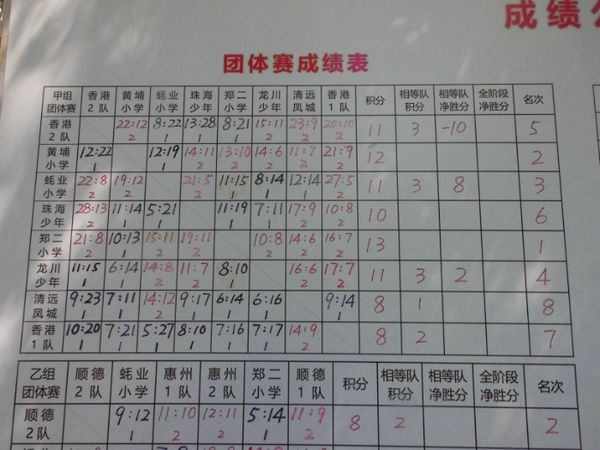 成绩
团体赛成绩表
甲组 香港 黄埔 蚝业 珠海 郑二 龙川 清远 香港 积分 相等队 相等队 全阶段 名次
团体赛 2队 小学 小学 少年 小学 少年 凤城 1队 积分 净胜分 净胜分
香港 22:12 8:22 13:28 8:21 15:11 23:9 20:10 11 3 -10 5
2队 2 1 1 1 2 2 2
黄埔 12:22 12:19 14:11 13:10 14:6 11:7 21:7 12 2
小学 1 1 2 2 2 2 2
蚝业 22:8 19:12 21:5 11:15 8:14 12:14 27:5 11 3 8 3
小学 2 2 2 1 1 1 2
珠海 28:13 11:14 5:21 11:19 7:11 17:9 10:8 10 6
少年 2 1 1 1 1 2 2
郑二 21:8 10:13 15:11 19:11 10:8 14:6 16:7 13 1
小学 2 1 2 2 2 2 2
龙川 11:15 6:14 14:8 11:7 8:10 16:6 17:7 11 3 2 4
少年 1 1 2 2 1 2 2
清远 9:23 7:11 14:12 9:17 6:14 6:16 9:14 8 1 8
凤城 1 1 2 1 1 1 1
香港 10:20 7:21 5:27 8:10 7:16 7:17 14:9 8 2 7
1队 1 1 1 1 1 1 2
乙组 顺德 蚝业 惠州 惠州 郑二 顺德 积分 相等队 相等队 全阶段 名次
团体赛 2队 小学 1队 2队 小学 1队 积分 净胜分 净胜分
顺德 9:12 11:10 12:11 5:14 11:9 8 2 2
2队 1 2 2 1 2